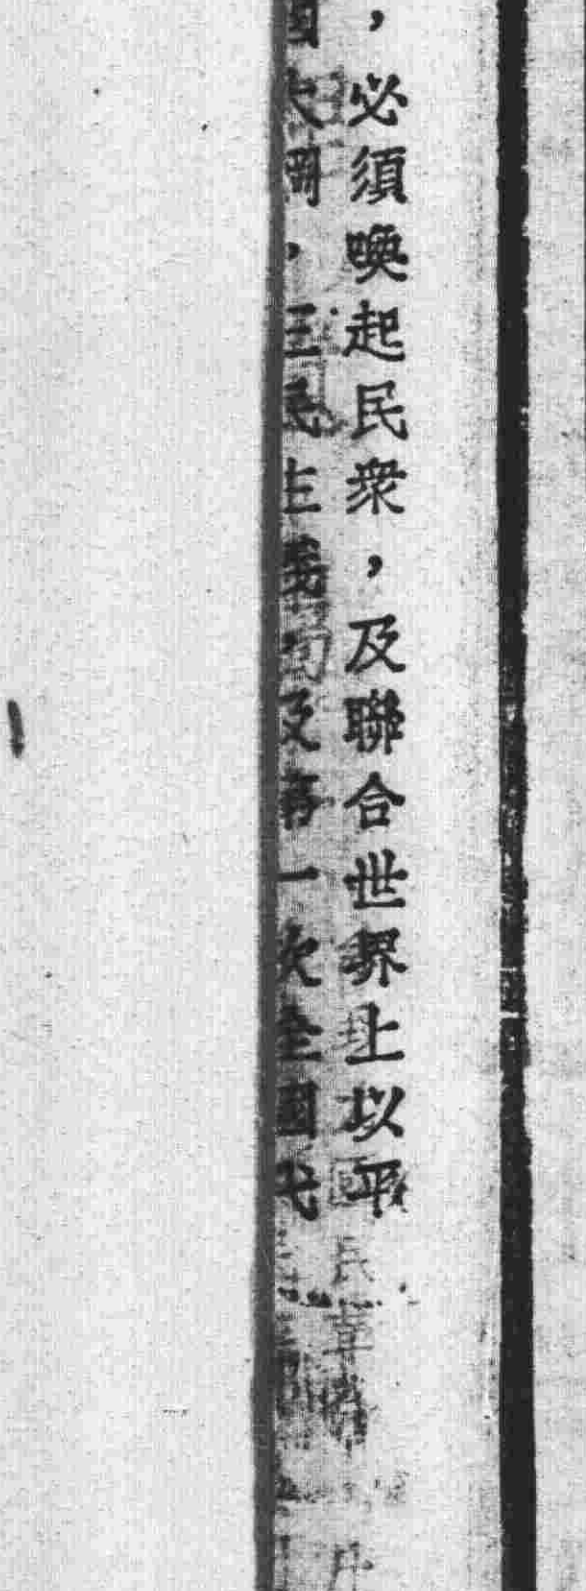 ，必須喚起民衆，及聯合世界上以平
國大綱，三民主義，及第一次全國代